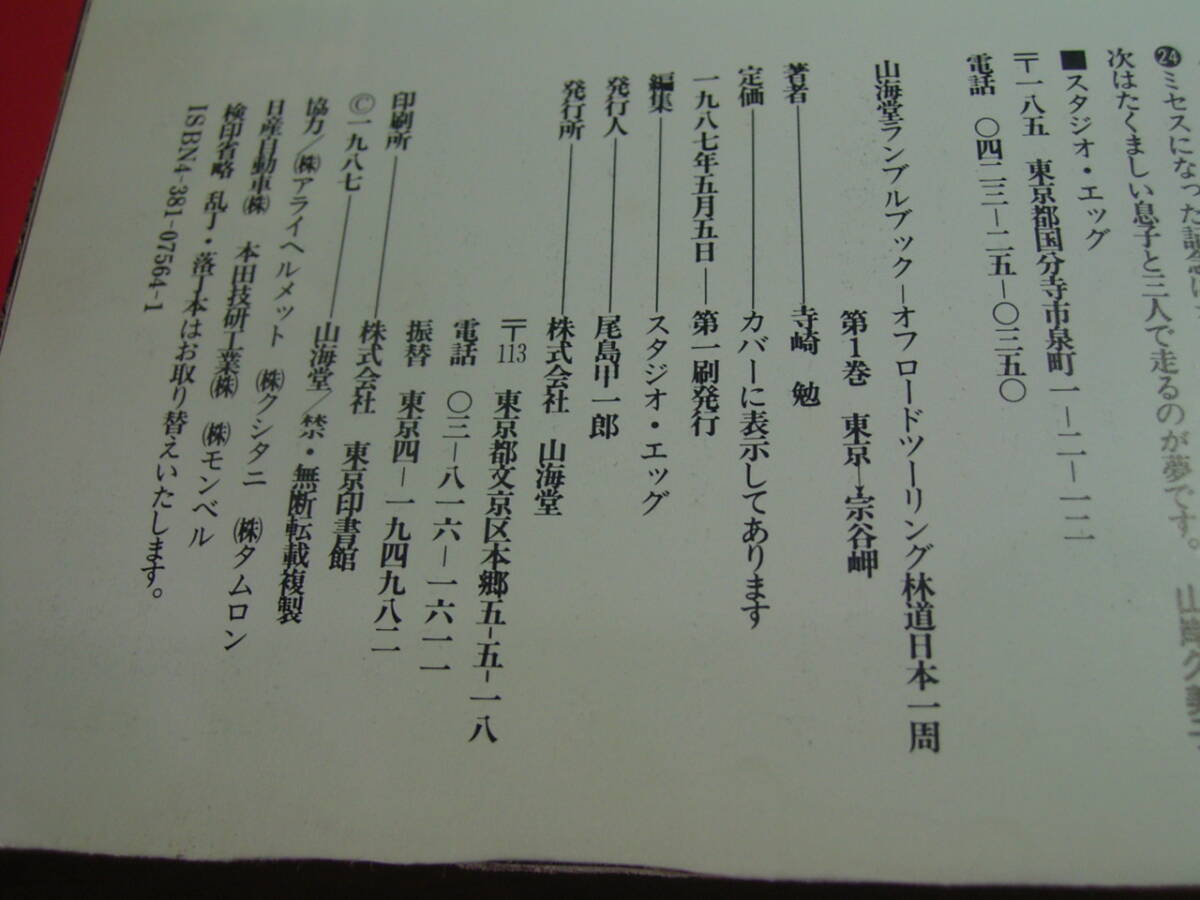 ㉔ミセスになった
次はたくましい息子と三人で走るのが夢です。 山岸久美子
■スタジオ・エッグ
〒一八五 東京都国分寺市泉町一−二−一二
電話 〇四二三−二五−〇三五〇
山海堂ランブルブック−オフロードツーリング林道日本一周
第1巻 東京→宗谷岬
著者 寺崎 勉
定価 カバーに表示してあります
一九八七年五月五日 第一刷発行
編集 スタジオ・エッグ
発行人 尾島甲一郎
発行所 株式会社 山海堂
〒113 東京都文京区本郷五−五−一八
電話 〇三−八一六−一六一一
振替 東京四−一九四九八二
印刷所 株式会社 東京印書館
©一九八七 山海堂/禁・無断転載複製
協力/㈱アライヘルメット ㈱クシタニ ㈱タムロン
日産自動車㈱ 本田技研工業㈱ ㈱モンベル
検印省略 乱丁・落丁本はお取り替えいたします。
ISBN4-381-07564-1